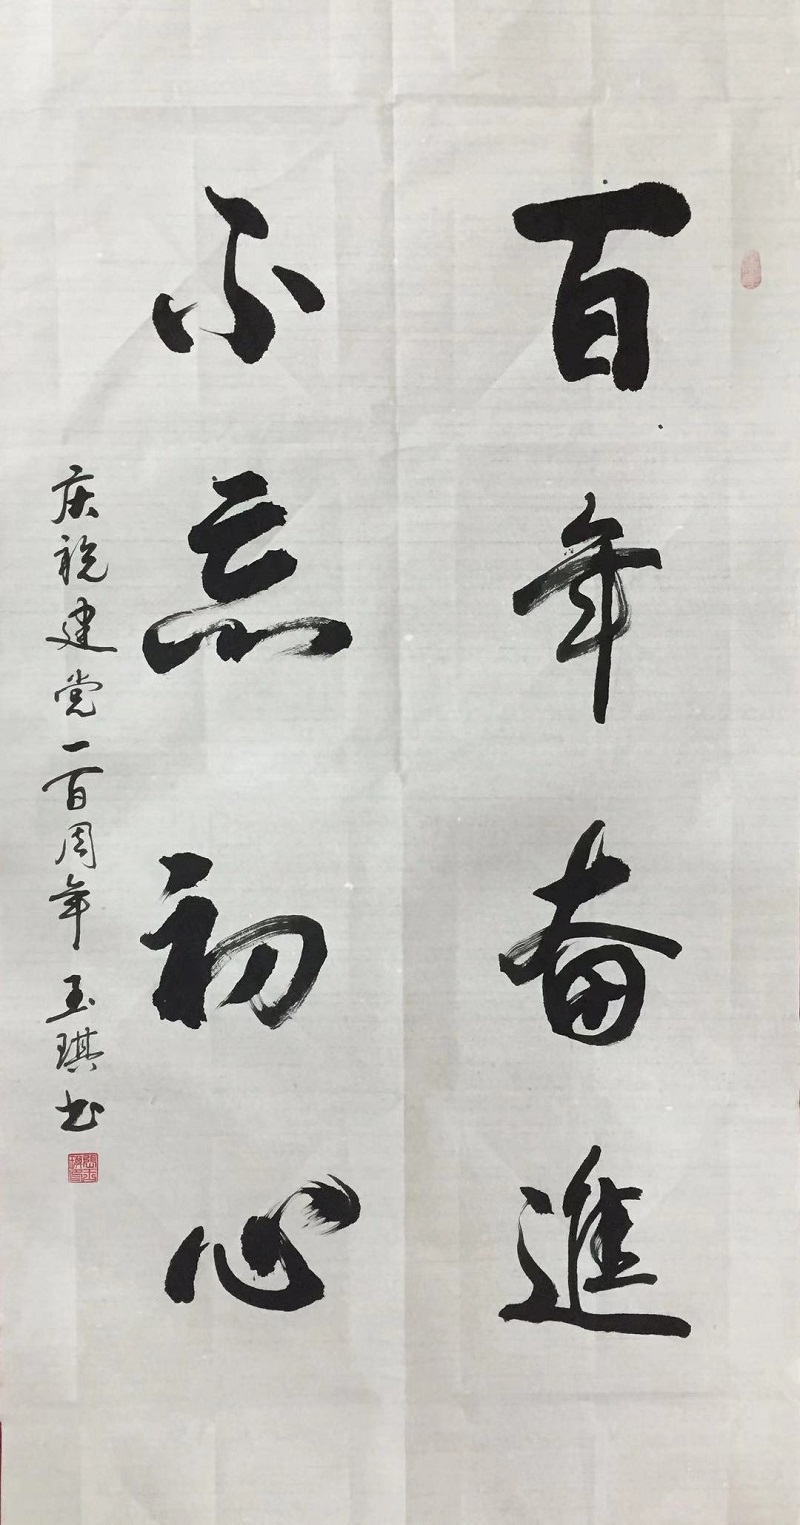 百年奋進
不忘初心
庆祝建党一百周年玉琪书